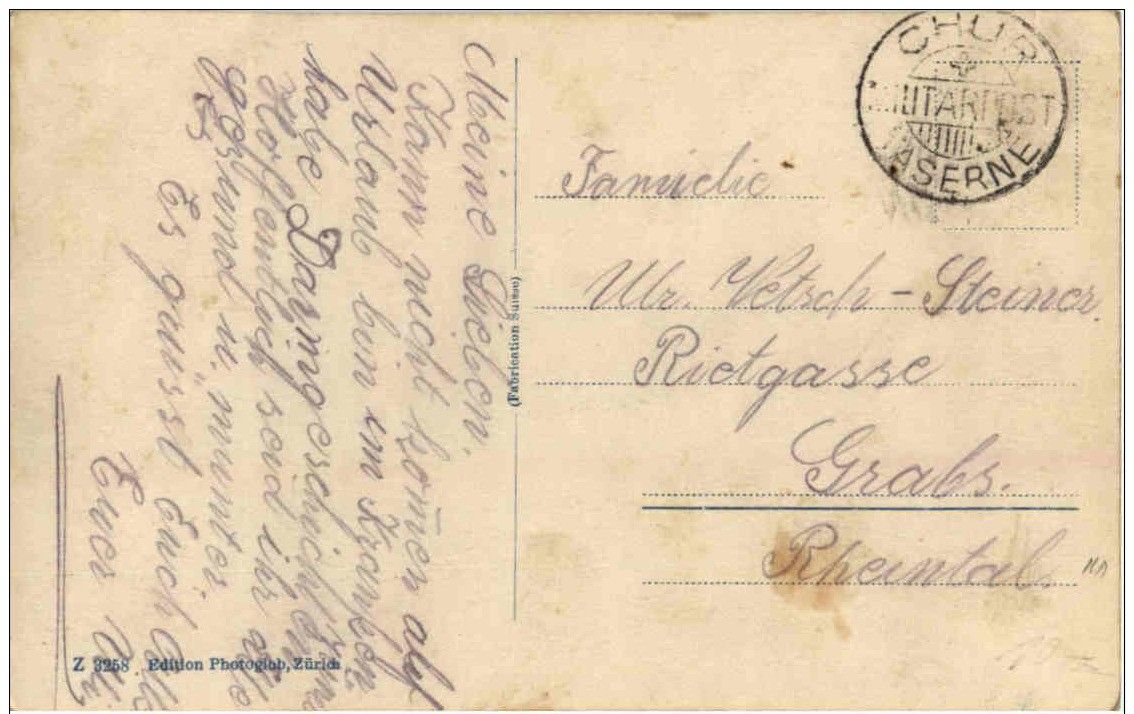 Meine Lieben.
Kann nicht komen auf
Urlaub bin im
habe
Hoffentlich seid ihr alle
gesund u. munter.
Es grüsst Euch alle
Euer
Z 3258 Edition Photoglob, Zürich
(Fabrication Suisse)
CHUR
MILITÄRPOST
KASERNE
Familie
Ulr. Vetsch - Steiner.
Rietgasse
Grabs.
Rheintal.